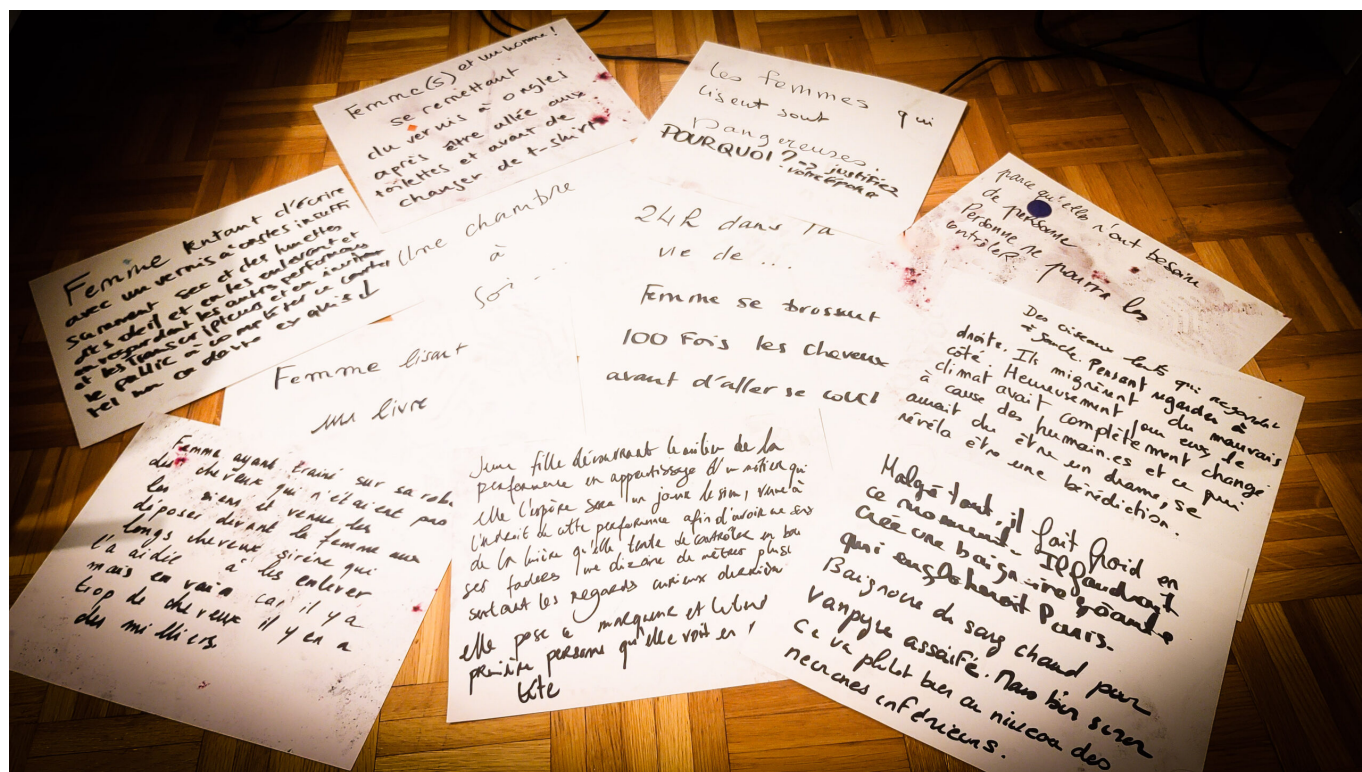 Femme(s) et un homme !
se remettant
du vernis à ongles
après être allée aux
toilettes et avant de
changer de t-shirt
Les femmes qui
lisent sont
Dangereuses.
POURQUOI ? → justifiez
votre réponse
parce qu'elles n'ont besoin
de personne
Personne ne pourra les
contrôler
Femme tentant d'écrire
avec un vernis à ongles insuffi
samment sec et des lunettes
de soleil et en les enlevant et
en regardant les autres performeurs
et les transcripteurs et en invitant
le public à compléter ce
Une chambre
à
soi ...
24h dans la
vie de ...
Femme se brossant
100 fois les cheveux
avant d'aller se couc
Femme lisant
un livre
Des oiseaux lents qui regardent
à gauche. Pensant regarder à
droite. Ils migrèrent du mauvais
côté. Heureusement pour eux le
climat avait complètement changé
à cause des humain.es et ce qui
aurait du être un drame, se
révéla être une bénédiction.
Femme ayant trainé sur sa robe
des cheveux qui n'étaient pas
les siens et venue les
déposer devant la femme aux
longs cheveux sirène qui
l'a aidée à les enlever
mais en vain car il y a
trop de cheveux il y en a
des milliers.
Jeune fille détournant le milieu de la
performance en apprentissage d'un métier qui
elle l'espère sera un jour le sien, venue à
l'endroit de cette performance afin d'avoir
de la lumière qu'elle tente de contrôler en
ses fadees une dizaine de mètres plus
sentant les regards curieux derrière
elle pose le marqueur et
première personne qu'elle voit en
tête
Malgré tout, il fait froid en
ce moment. Il faudrait
créer une baignoire géante
qui engloberait Paris.
Baignoire de sang chaud pour
vampyre assoifé. Mais bien sûr
Ca va plutôt bien au niveau des
necrones inférieurs.